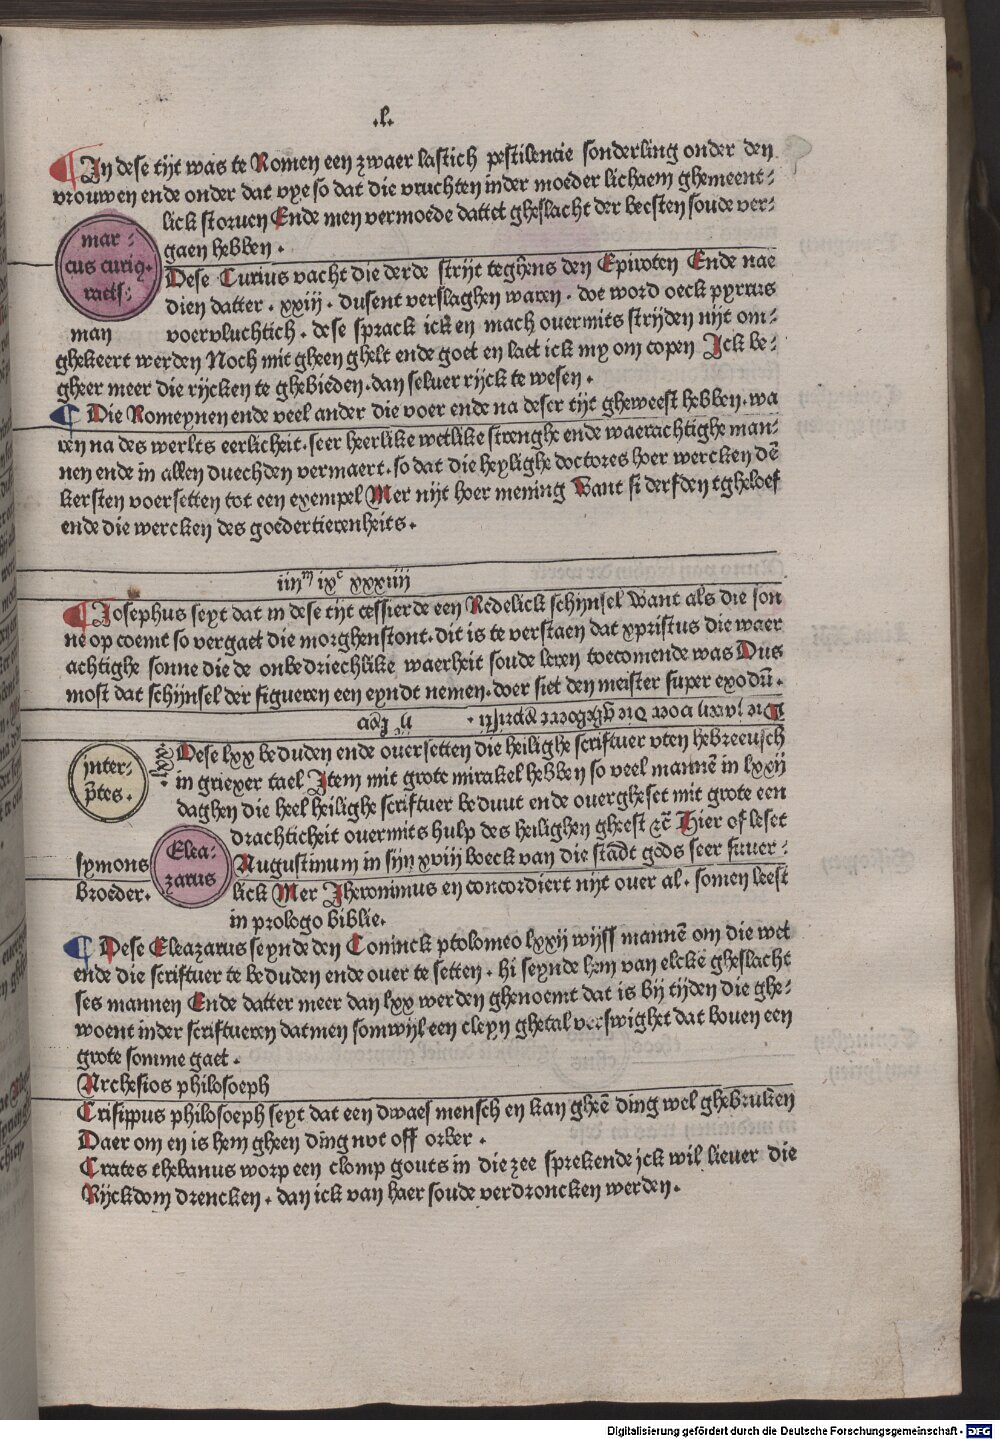 .l.
In dese tijt was te Romen een zwaer lastich pestilencie sonderling onder den
vrouwen ende onder dat vye so dat die vruchten inder moeder lichaem ghemeent-
lick storuen Ende men vermoede dattet gheslacht der beesten soude ver-
gaen hebben .
mar-
cus curiꝰ.
raets-
man
Dese Curius vacht die derde strijt teghens den Epiroten Ende nae
dien datter . xxiij . dusent verslaghen waren . doe word oeck pyrrus
voervluchtich . dese sprack ick en mach ouermits strijden nijt om-
ghekeert werden Noch mit gheen ghelt ende goet en laet ick my om copen Ick be-
gheer meer die rijcken te ghebieden . dan seluer rijck te wesen .
Die Romeynen ende veel ander die voer ende na deser tijt gheweest hebben . wa
ren na des werlts eerlicheit . seer heerlike wetlike strenghe ende waerachtighe man-
nen ende in allen duechden vermaert . so dat die heylighe doctores hoer wercken dē
kersten voersetten tot een exempel Mer nijt hoer mening Want si derfden tgheloef
ende die wercken des goedertierenheits .
iiijᵐ ixᶜ xxxiiij
Josephus seyt dat in dese tijt cessierde een Redelick schijnsel Want als die son
ne op coemt so vergaet die morghenstont . dit is te verstaen dat xpristus die waer
achtighe sonne die de onbedriechlike waerheit soude leren toecomende was Dus
most dat schijnsel der figueren een eyndt nemen . doer siet den meister super exodū .
Die iaren voer die gheboerte xpristi . ijᶜ lxv
inter-
p̄tes .
lxx
Dese lxx beduden ende ouersetten die heilighe scriftuer vten hebreeusch
in griexer tael Item mit grote mirakel hebben so veel mannē in lxxij
daghen die heel heilighe scriftuer beduut ende ouergheset mit grote een
drachticheit ouermits hulp des heilighen gheest ⁊c̄ Hier of leset
Augustinum in sijn xviij boeck van die stādt gods seer suuer-
lick Mer Jheronimus en concordiert nijt ouer al . somen leest
in prologo biblie .
Elea-
zarus
symons
broeder .
Dese Eleazarus seynde den Coninck ptolomeo lxxij wijss mannē om die wet
ende die scriftuer te beduden ende ouer te setten . hi seynde hem van elckē gheslacht
ses mannen Ende datter meer dan lxx werden ghenoemt dat is bij tijden die ghe-
woent inder scriftueren datmen somwijl een cleyn ghetal verswighet dat bouen een
grote somme gaet .
Archesios philosoeph
Crisippus philosoeph seyt dat een dwaes mensch en kan gheē ding wel ghebrukēn
Daer om en is hem gheen ding nvt off orber .
Crates thebanus worp een clomp gouts in die zee sprekende jck wil lieuer die
Rijckdom drencken . dan ick van haer soude verdroncken werden .
Digitalisierung gefördert durch die Deutsche Forschungsgemeinschaft - DFG